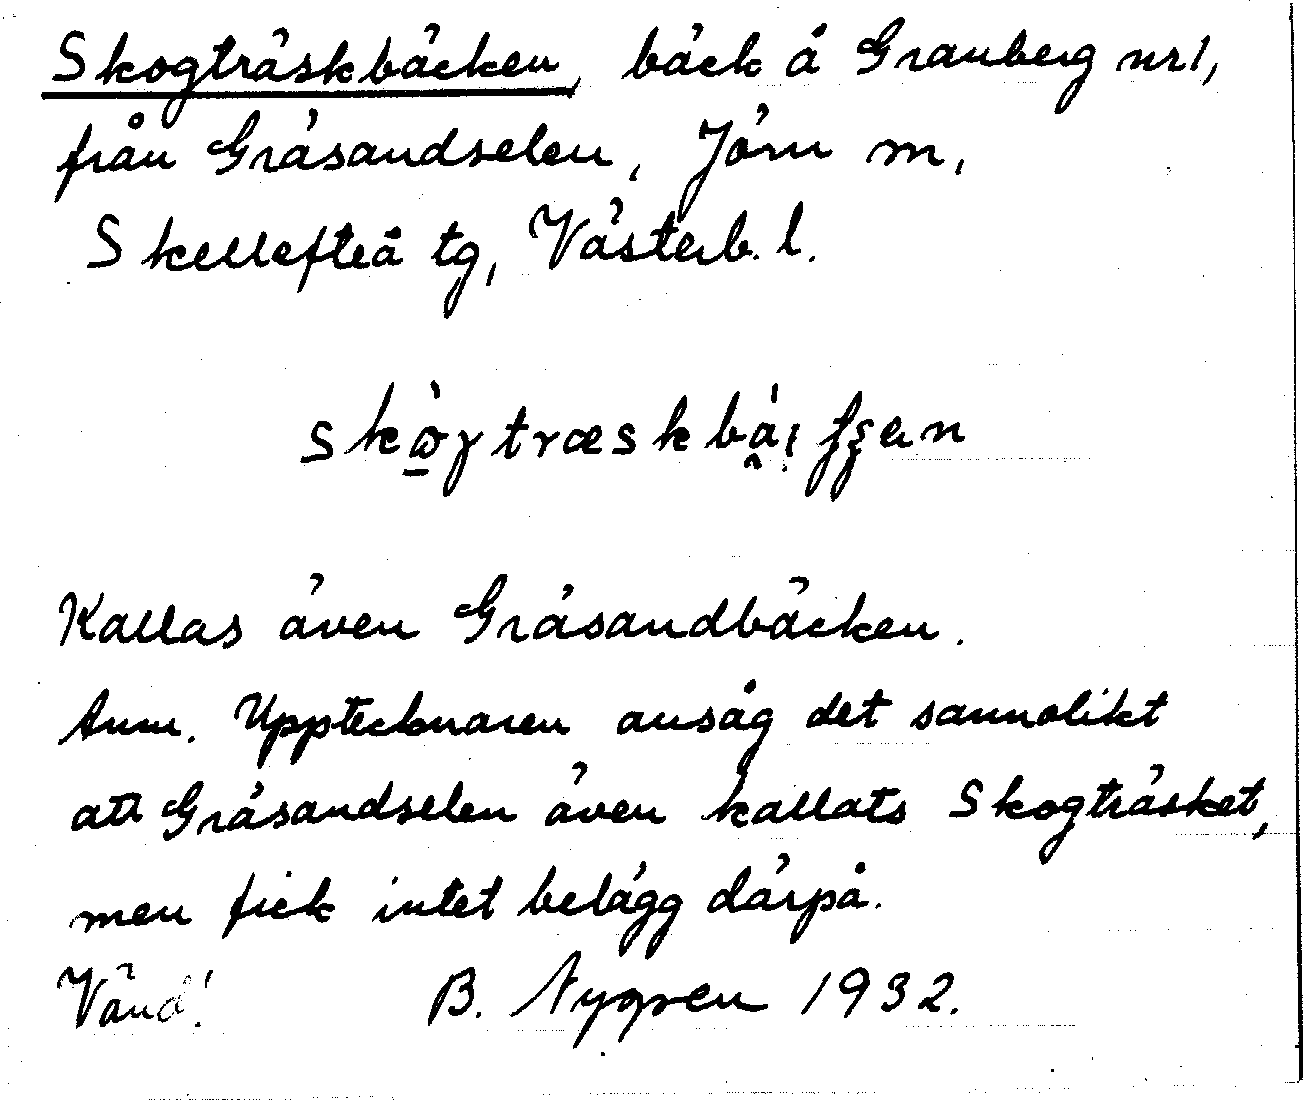 Skogträskbäcken, bäck å Granberg nr 1,
från Gråsandselen, Jörn m,
Skellefteå tg, Västerb. l.
Kallas även Gråsandbäcken.
Anm. Upptecknaren ansåg det sannolikt
att Gråsandselen även kallats Skogträsket,
men fick intet belägg därpå.
Vänd! B. Nygren 1932.